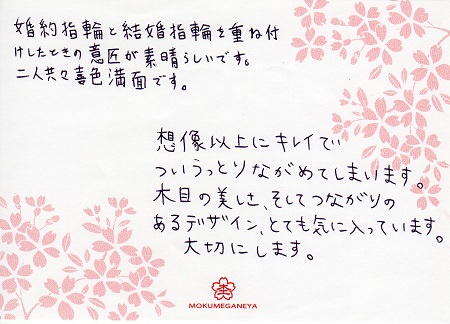 婚約指輪と結婚指輪を重ね付
けしたときの意匠が素晴らしいです。
二人共々喜色満面です。
想像以上にキレイで
ついうっとりながめてしまいます。
木目の美しさ、そしてつながりの
あるデザイン、とても気に入っています。
大切にします。
MOKUMEGANEYA